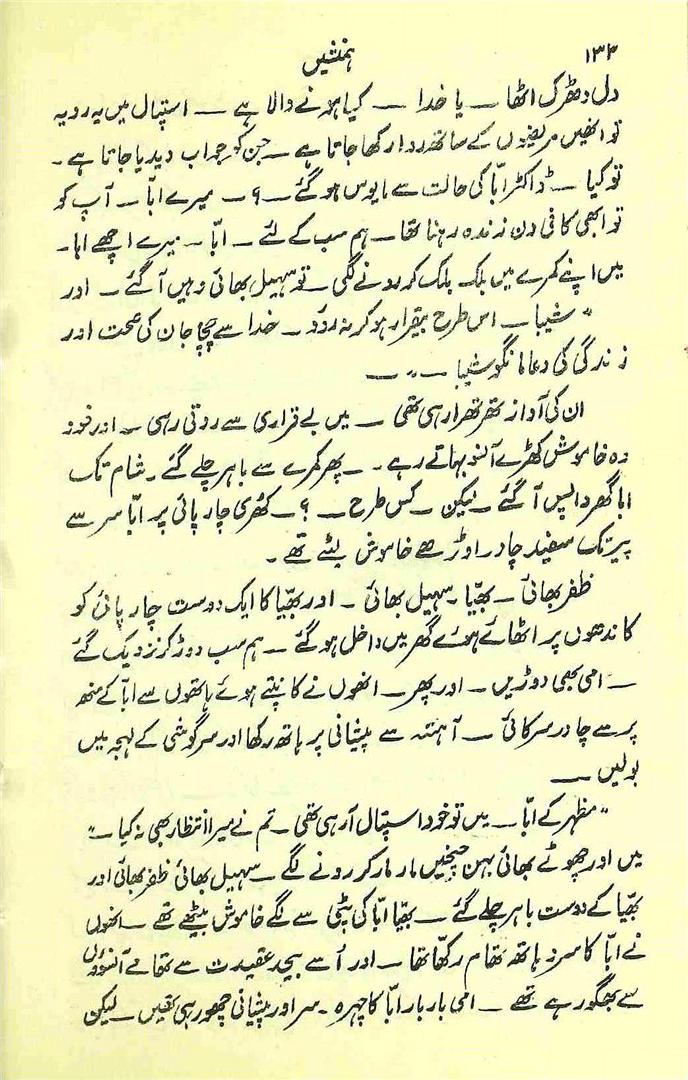 ۱۳۲
ہمنشیں
دل دھڑک اٹھا ــ یا خدا ــ کیا ہونے والا ہے ــ اسپتال میں یہ رویہ
تو انھیں مریضوں کے ساتھ روا رکھا جاتا ہے ــ جن کو جواب دیدیا جاتا ہے ۔
تو کیا ــ ڈاکٹر ابّا کی حالت سے مایوس ہو گئے ــ ؟ ــ میرے ابّا ــ آپ کو
تو ابھی کافی دن زندہ رہنا تھا ــ ہم سب کے لئے ــ ابّا ــ میرے اچھے ابا ۔
میں اپنے کمرے میں بلک بلک کر رونے لگی ــ تو سہیل بھائی وہیں آ گئے ــ اور
" شیبا ــ اس طرح بیقرار ہو کر نہ روؤ ــ خدا سے چچا جان کی صحت اور
زندگی کی دعا مانگو شیبا ــ " ــ
ان کی آواز تھرتھرا رہی تھی ــ میں بے قراری سے روتی رہی ــ اور خود
وہ خاموش کھڑے آنسو بہاتے رہے ۔ ــ پھر کمرے سے باہر چلے گئے ــ شام تک
ابا گھر واپس آ گئے ــ لیکن ــ کس طرح ــ ؟ ــ کھری چارپائی پر ابّا سر سے
پیر تک سفید چادر اوڑھے خاموش لیٹے تھے ۔
ظفر بھائی ــ بھیّا ۔ سہیل بھائی ــ اور بھیّا کا ایک دوست چارپائی کو
کاندھوں پر اٹھائے ہوئے گھر میں داخل ہو گئے ــ ہم سب دوڑ کر نزدیک گئے
ــ امی بھی دوڑیں ــ اور پھر ــ انھوں نے کانپتے ہوئے ہاتھوں سے ابّا کے منھ
پر سے چادر سرکائی ــ آہستہ سے پیشانی پر ہاتھ رکھا اور سرگوشی کے لہجہ میں
بولیں ــ
" مظہر کے ابّا ــ میں تو خود اسپتال آ رہی تھی ــ تم نے میرا انتظار بھی نہ کیا ــ "
میں اور چھوٹے بھائی بہن چیخیں مار مار کر رونے لگے ــ سہیل بھائی ظفر بھائی اور
بھیّا کے دوست باہر چلے گئے ــ بھیّا ابّا کی پٹی سے لگے خاموش بیٹھے تھے ــ انھوں
نے ابّا کا سرد ہاتھ تھام رکھا تھا ــ اور اُسے بیحد عقیدت سے تھامے آنسوؤں
سے بھگو رہے تھے ــ امی بار بار ابّا کا چہرہ ۔ سر اور پیشانی چھو رہی تھیں ــ لیکن